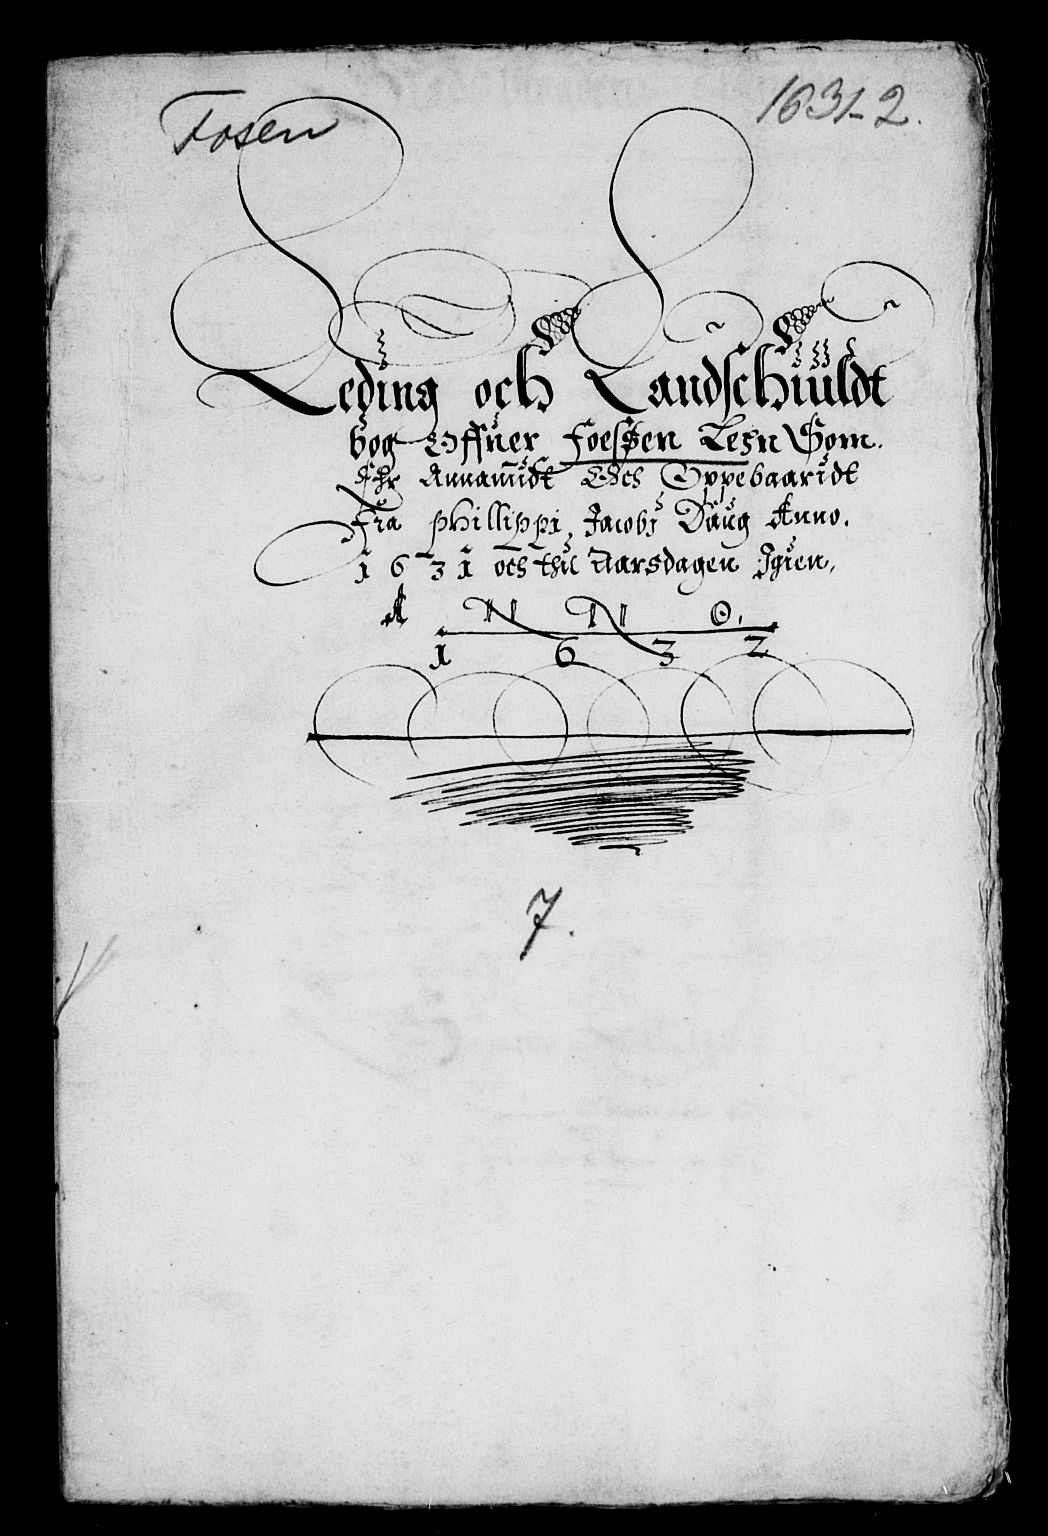 Fosen
1631-2.
Leding och Landschuldt
bog Offuer Foeszen Lehn Som.
Ehr Annamidt Och Oppebaaridt
Fra Phillippi Jacobj Daug Anno.
1631 och thil Aarsdagen Igien,
ANNO.
1632
7.